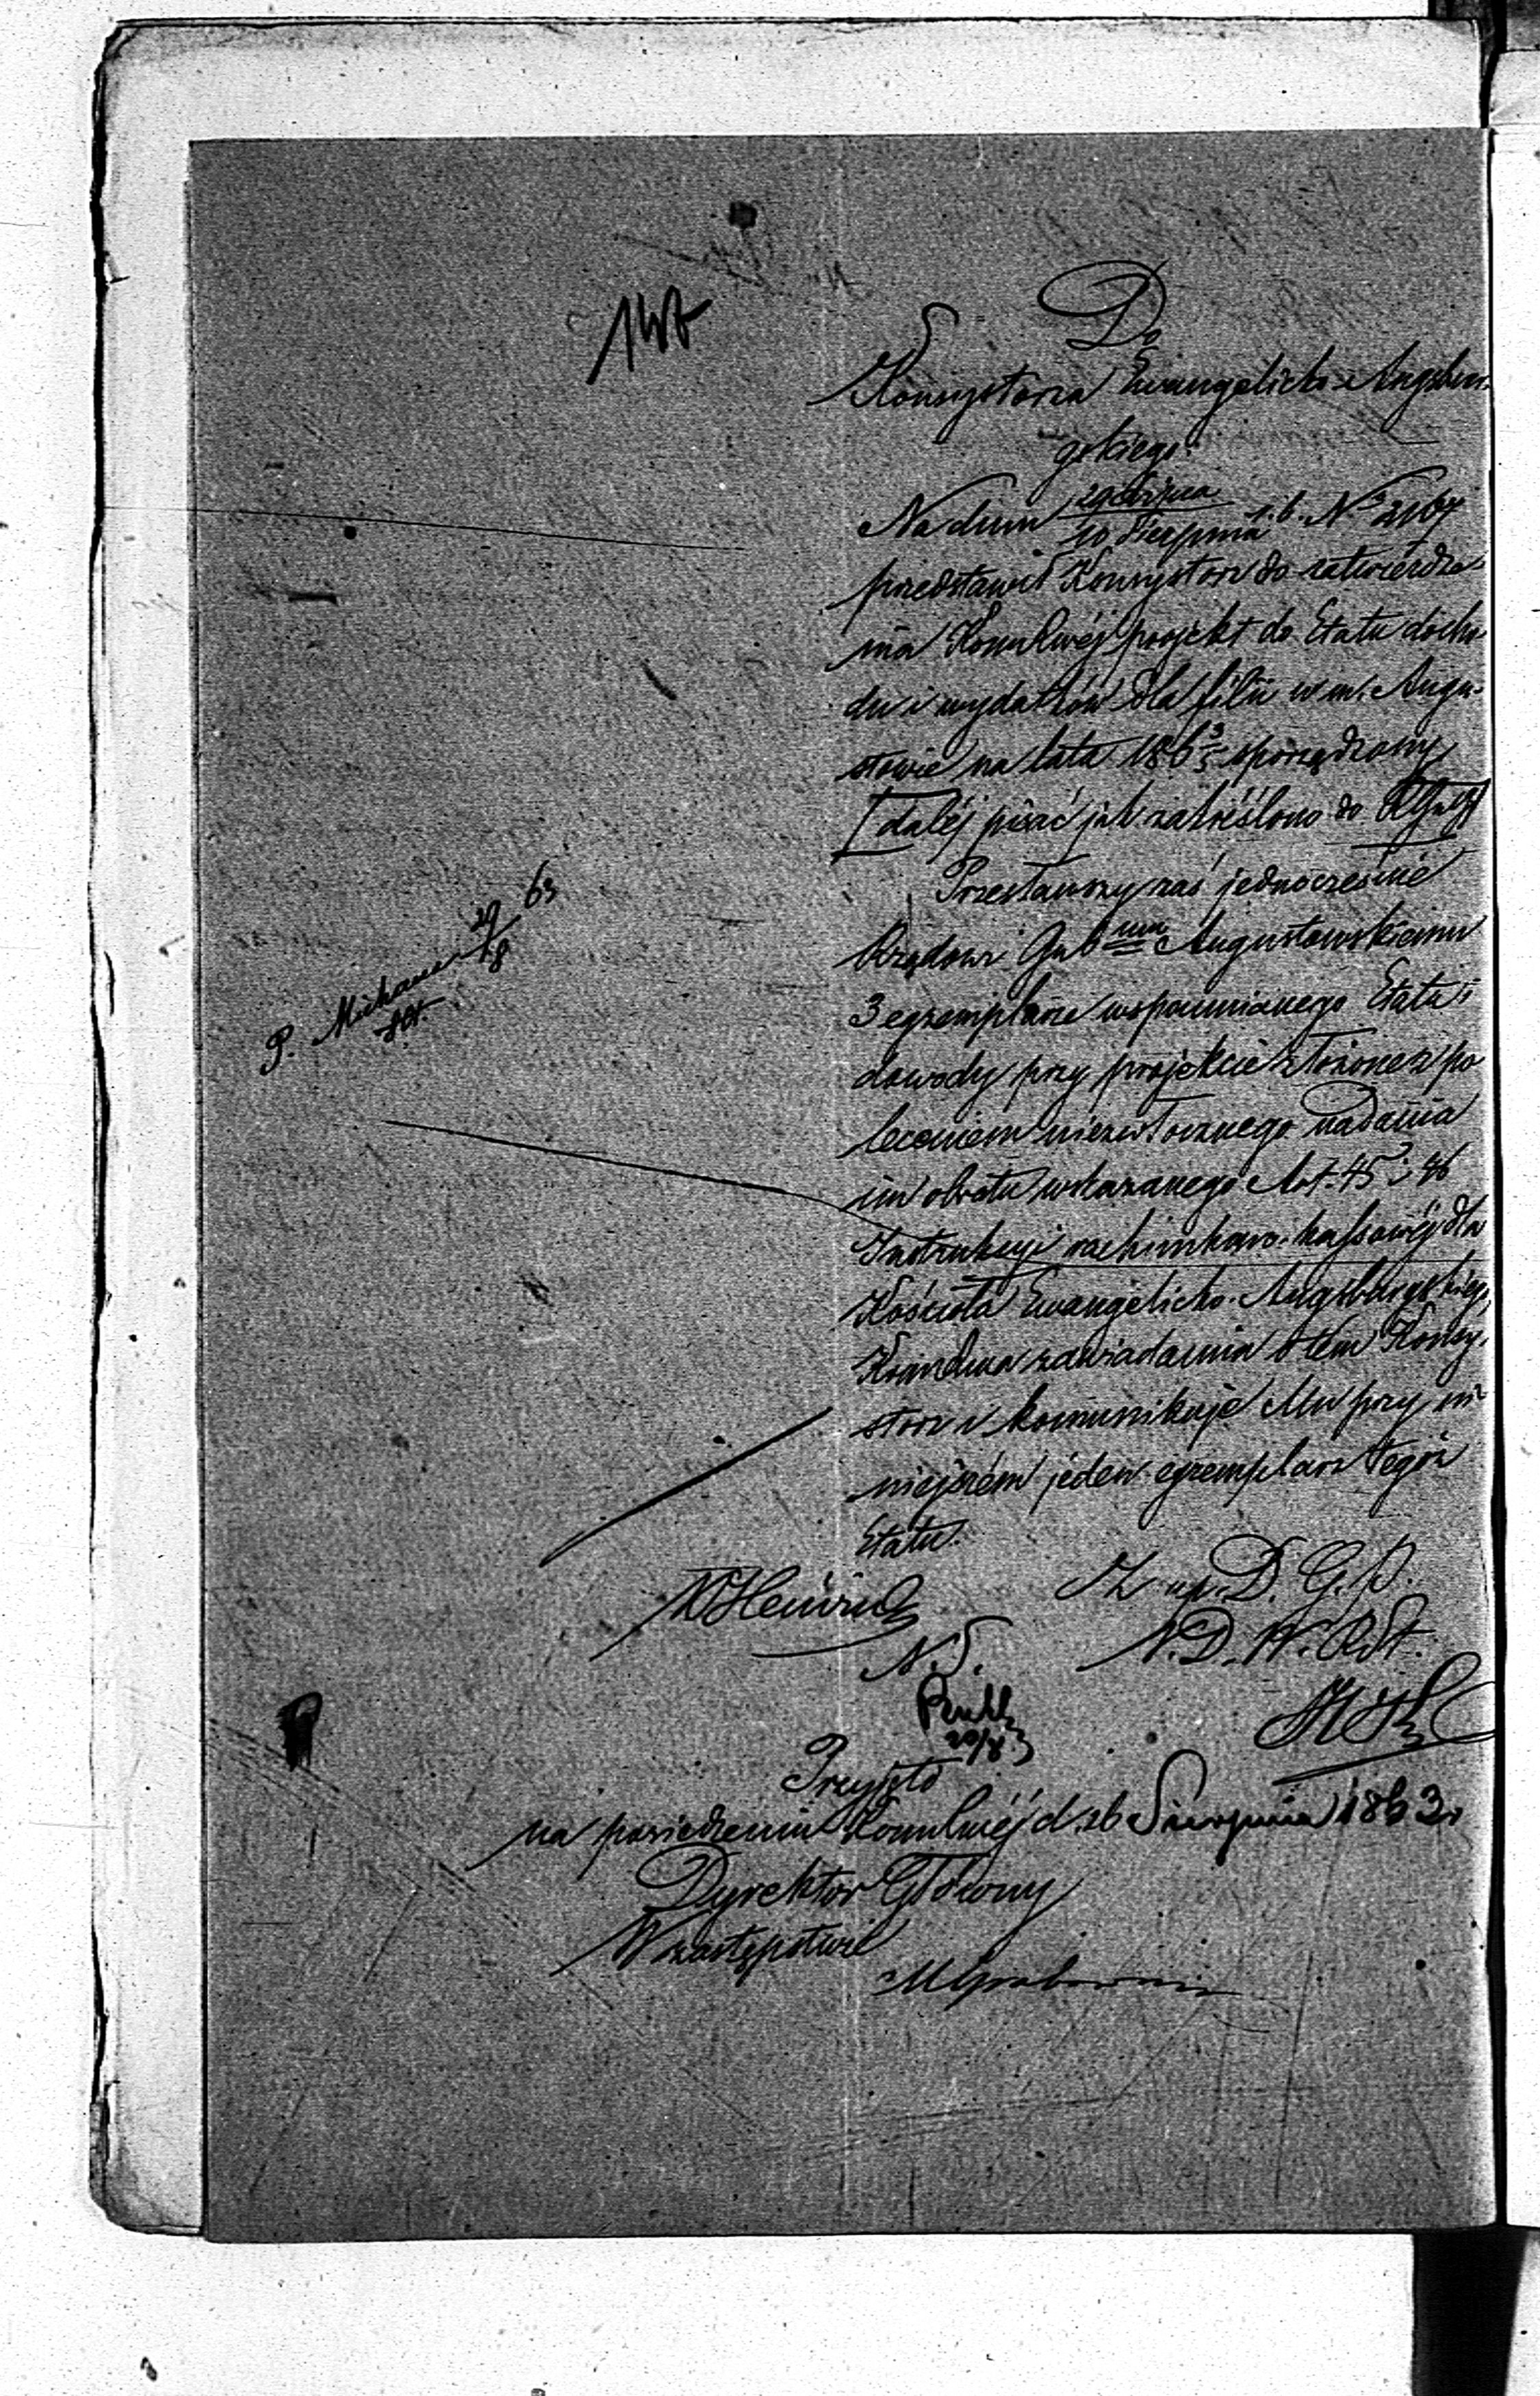 Do
Konsystorza Ewangelicko-Augsbur-
gskiego.
Na dniu 29 Lipca / 10 Sierpnia r. b. N° 2167
przedstawił Konsystorz do zatwierdze-
nia Kom. Rwéj projekt do Etatu docho-
du i wydatków dla filii w m. Augu-
stowie na lata 186 3/5 sporządzony
[daléj pisać jak zakréślono do
Przesławszy zaś jednocześnie
Rządowi Gubnmu Augustowskiemu
3 egzemplarze wspomnianego Etatu i
dowody przy projekcie złożone z po
leceniem niezwłocznego nadania
im obrotu wskazanego Art. 45 i 46
Instrukcyi rachunkowo-kassowéj dla
Kościoła Ewangelicko-Augsburgskiego,
zawiadamia o tem Konsy-
storz i komunikuje Mu przy ni
niejszém jeden egzemplarz tegoż
Etatu.
P. 29/8 63
Z up. D. G. P.
N. D. W.
Heinrich
N. S.
20/8 3
Przyjęto
na posiedzeniu d. 26 Sierpnia 1863 r
Dyrektor Główny
W zastępstwie